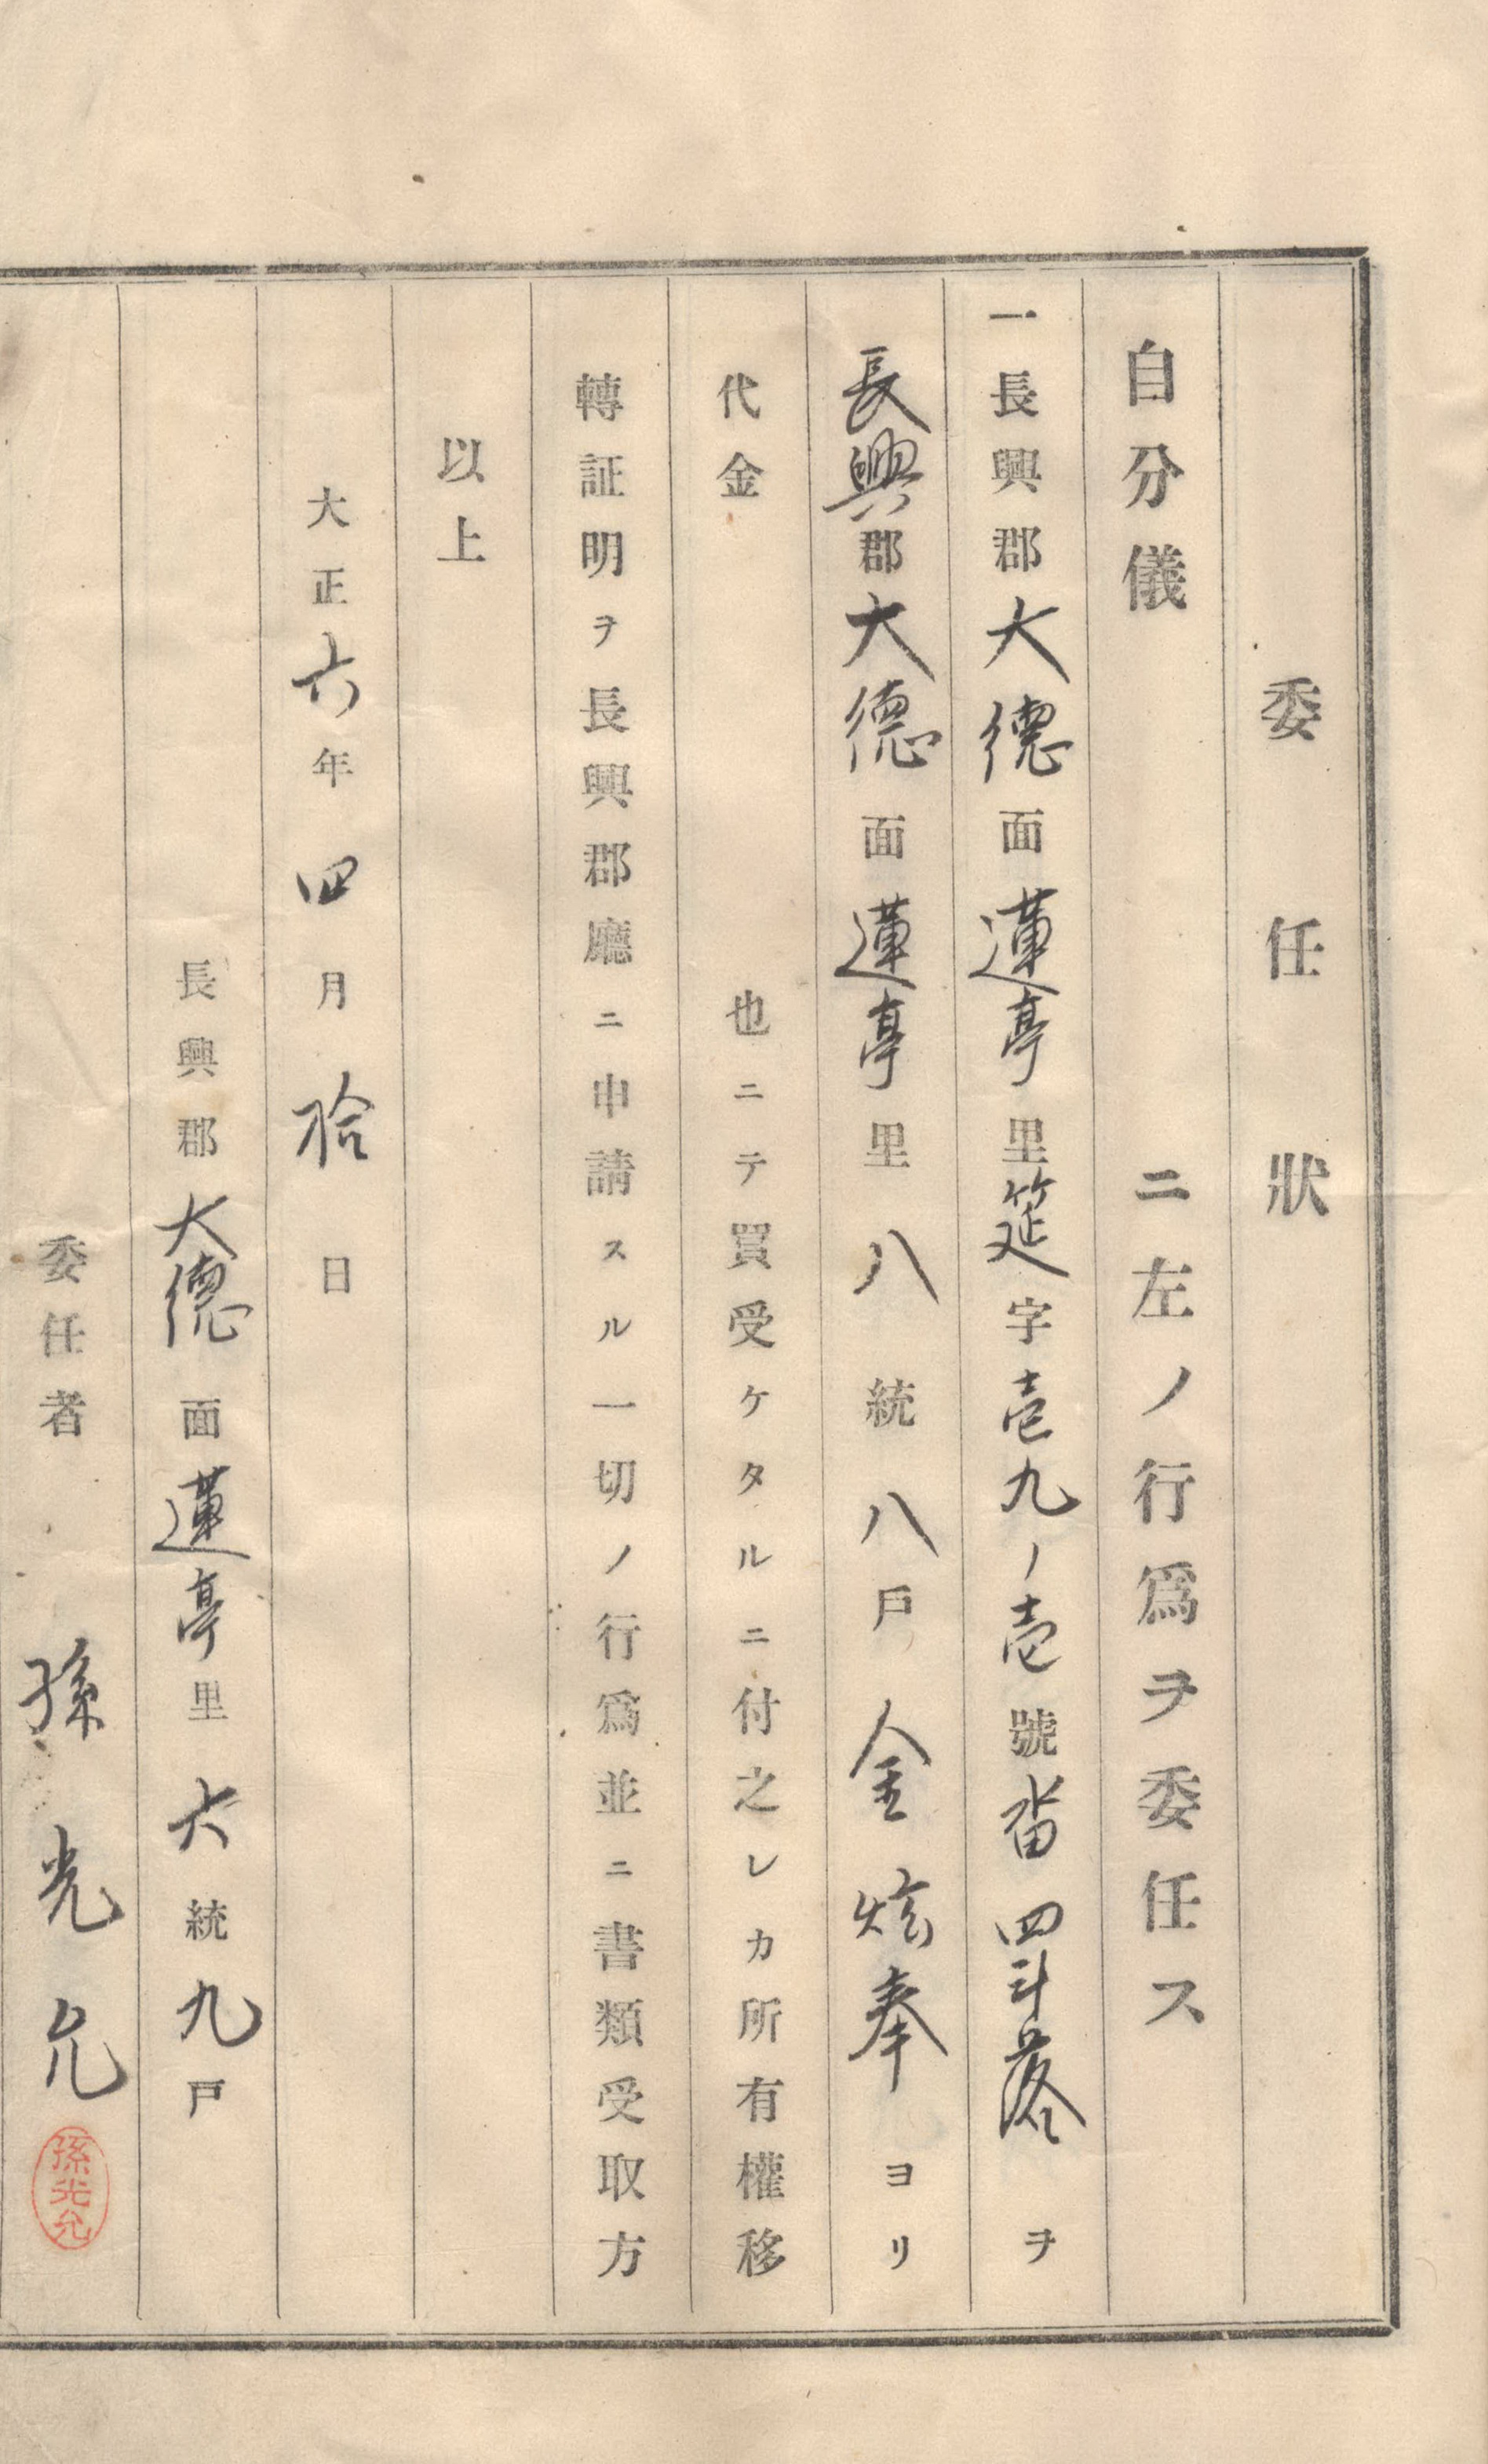 委任狀
自分儀 ニ左ノ行爲ヲ委任ス
一長興郡大德面蓮亭里筵字壱九ノ壱號畓四斗落ヲ
長興郡大德面蓮亭里八統八戶金炫奉ヨリ
代金 也ニテ買受ケタルニ付之レカ所有權移
轉証明ヲ長興郡廳ニ申請スル一切ノ行爲並ニ書類受取方
以上
大正六年四月拾日
長興郡大德面蓮亭里六統九戶
委任者 孫光允
孫光允